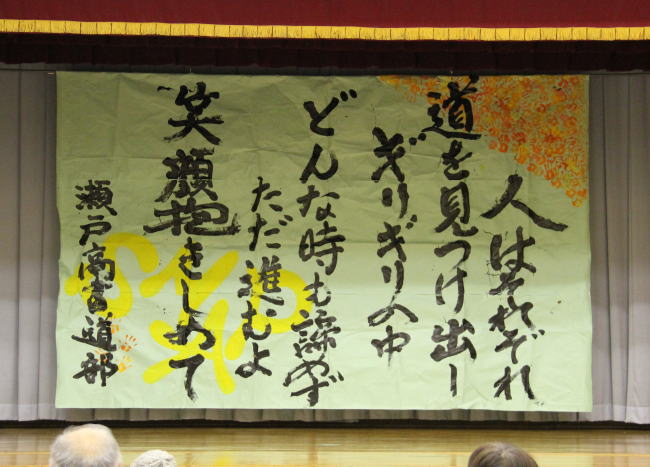 人はそれぞれ
道を見つけ出し
ギリギリの中
どんな時も諦めず
ただ進むよ
笑顔抱きしめて
瀬戸高書道部